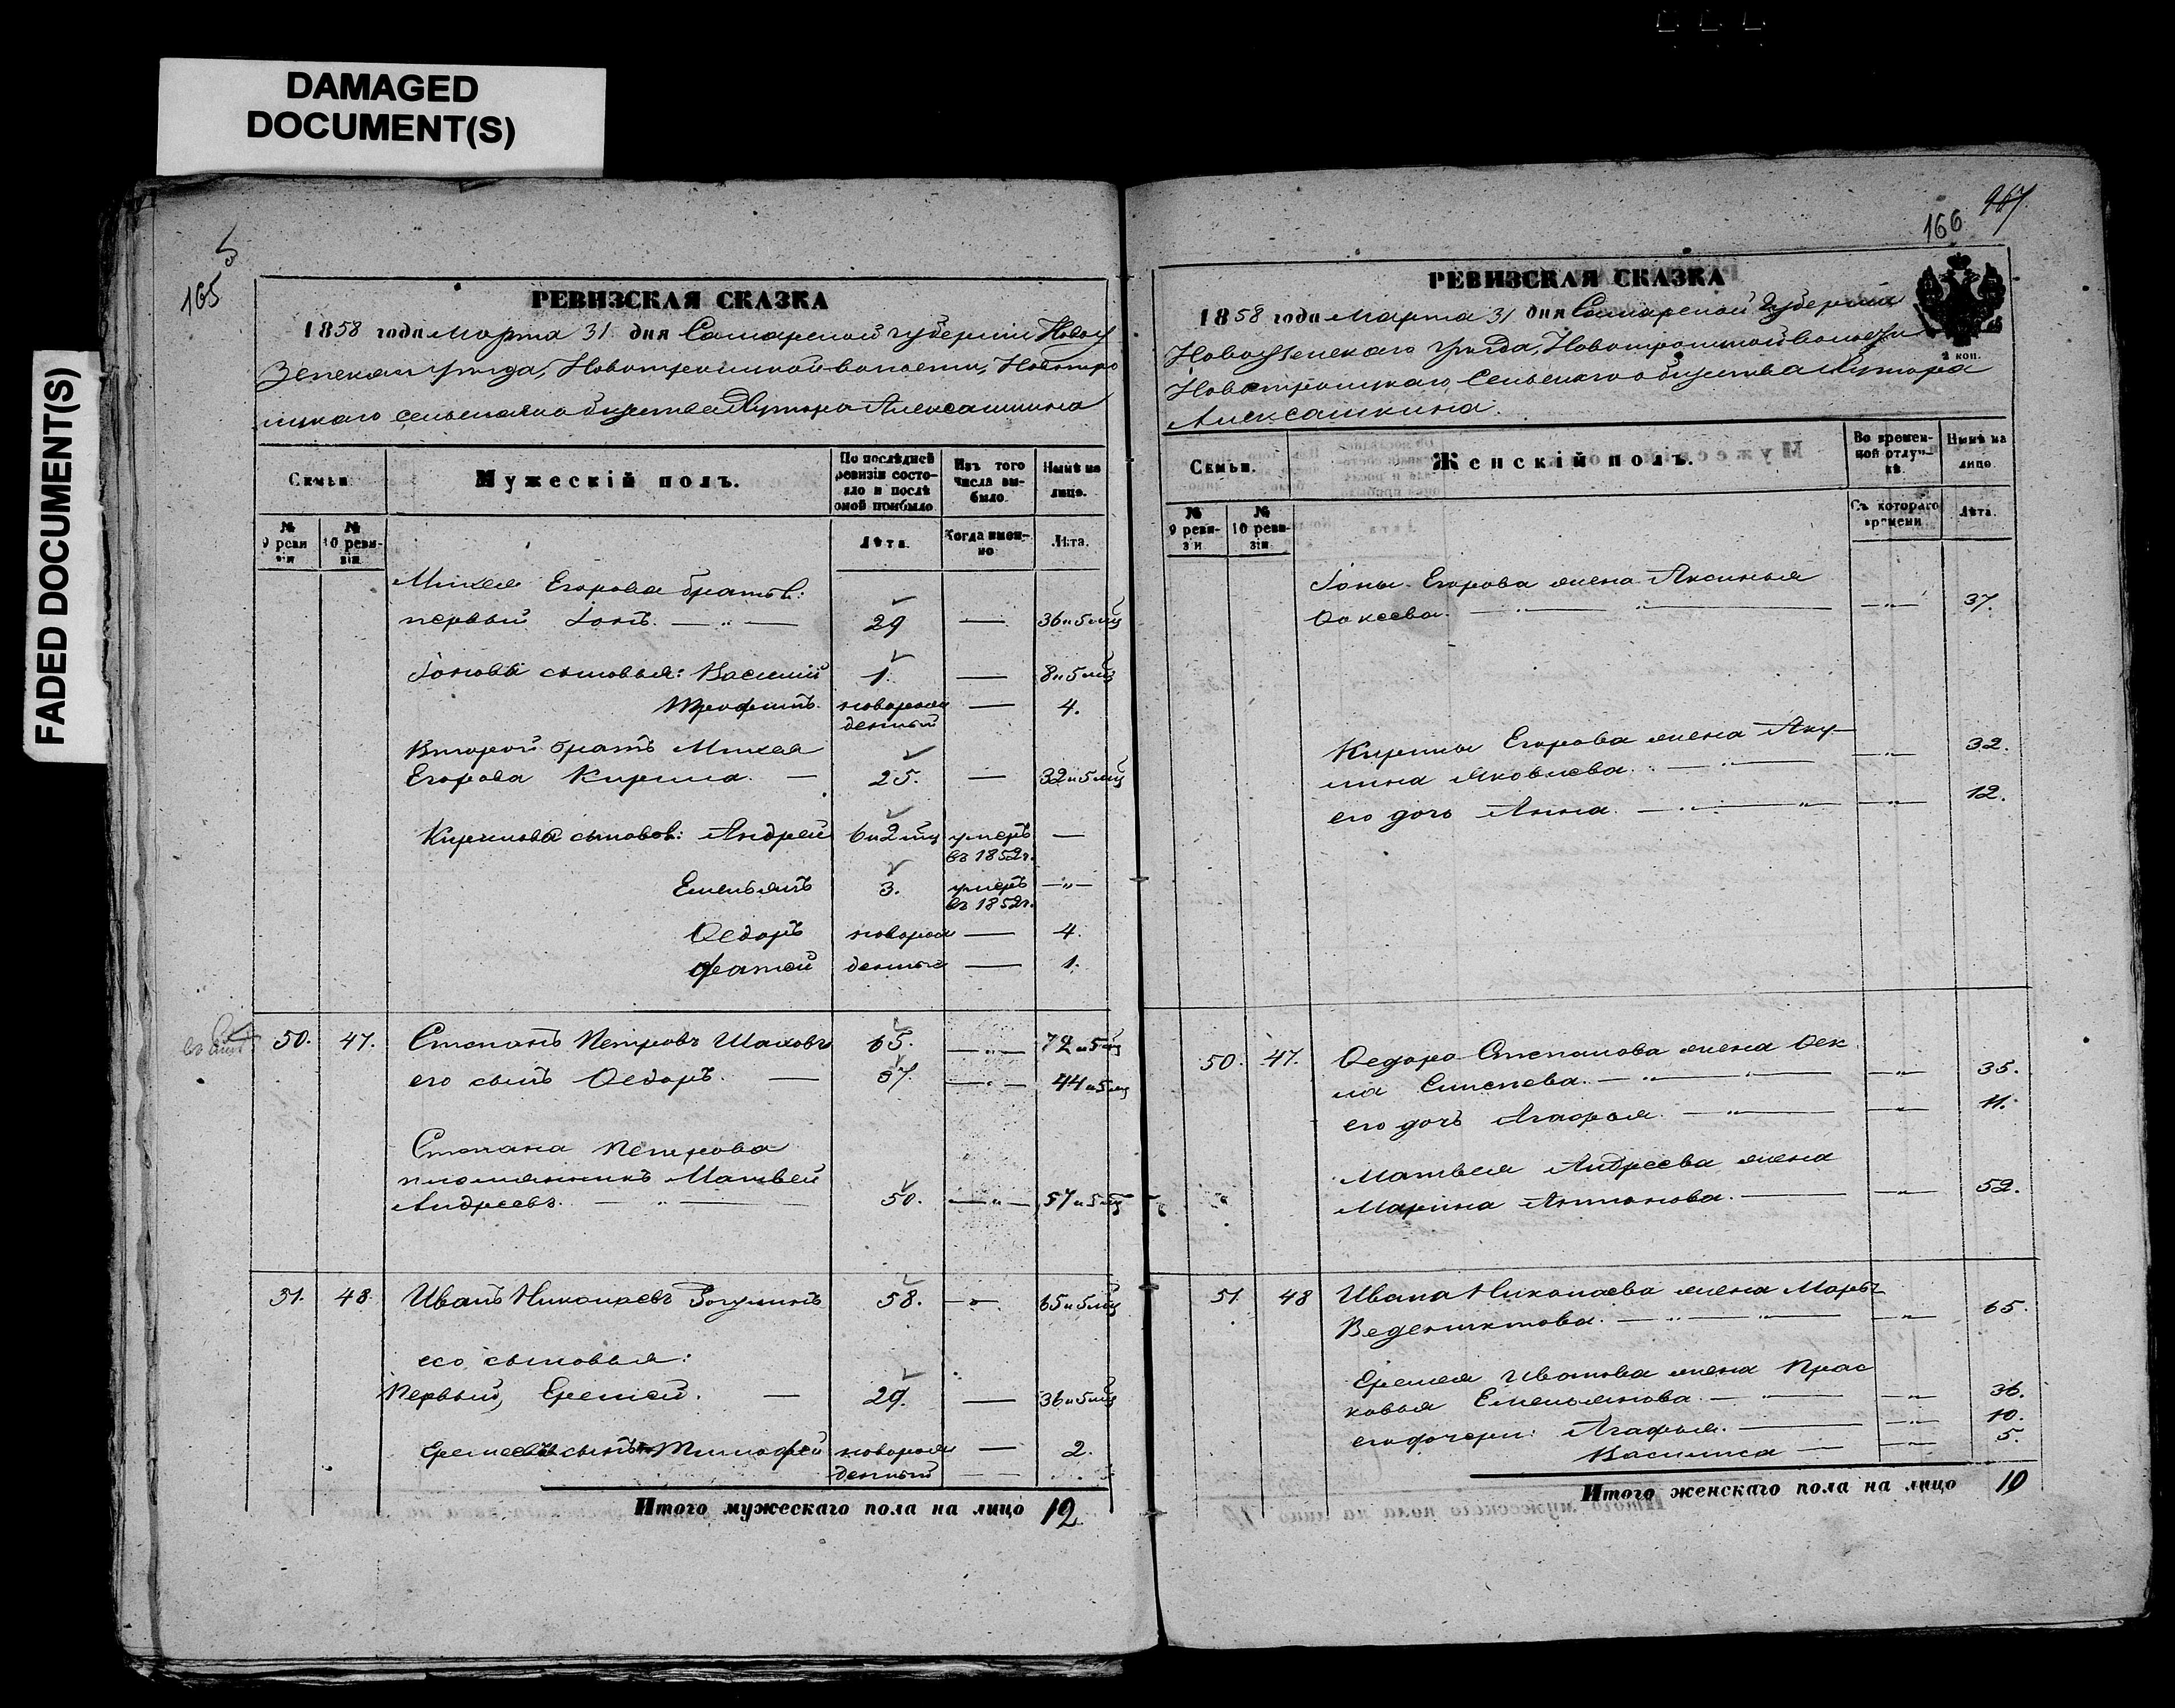 DAMAGED
DOCUMENT(S)
FADED DOCUMENT(S)
165
РЕВИЗСКАЯ СКАЗКА
1858 года Марта 31 дня Самарской губерніи Новоу
зенскаго уѣзда, Новотроицкой волости, Новотро
ицкаго сельскаго общества Хутора Алексашкина
Семьи.
Мужескій полъ.
По послѣдней ревизіи состояло и послѣ оной прибыло
Изъ того числа выбыло.
Нынѣ на лицо.
№ 9 ревизіи
№ 10 ревизіи.
Лѣта.
Когда именно
Лѣта.
Михея Егорова братья:
первый Іонъ. — 29 — 36 и 5 мц
Іоновы сыновья: Василий 1. — 8 и 5 мц
Трофимъ. новорож — 4.
денный
Второй братъ Михея
Егорова Кирила. — 25. — 32 и 5 мц
Кириловы сыновья: Андрей 6 и 2 мц умеръ —
въ 1852 г.
Емельянъ 3. умеръ —
въ 1852 г.
Ѳедоръ новорож — 4.
денные — 1.
50. 47. Степанъ Петровъ Шаховъ 65. — 72 и 5 мц
его сынъ Ѳедоръ. — 37. — 44 и 5 мц
Степана Петрова
племянникъ Матвей
Андреевъ. — 50. — 57 и 5 мц
51. 48. Иванъ Николаевъ 58. — 65 и 5 мц
его сыновья:
Первый, Еремей. — 29. — 36 и 5 мц
Еремеевъ сынъ Тимофей новорож — 2.
денный
Итого мужескаго пола на лицо 12
166
167
РЕВИЗСКАЯ СКАЗКА
1858 года Марта 31 дня Самарской Губерніи
Новоузенскаго уѣзда, Новотроицкой волости
Новотроицкаго Сельскаго общества Хутора
Алексашкина.
2 коп.
Семьи.
Женскій полъ.
Во временной отлучкѣ.
Нынѣ на лицо.
№ 9 ревизіи
№ 10 ревизіи.
Съ котораго времени
Лѣта.
Іоны Егорова жена Аксинья
— 37.
Кирилы Егорова жена Аку-
лина Яковлева. — 32.
его дочь Анна. — 12.
50. 47. Ѳедора Степанова жена Ѳек
ла — 35.
его дочь Агафья. — 11.
Матвея Андреева жена
Марина Антонова. — 52.
51. 48 Ивана Николаева жена Марья
Веденихтова. — 65.
Еремея Иванова жена Прас
ковья Емельянова. — 36.
его дочери: Агафья. — 10.
Василиса — 5.
Итого женскаго пола на лицо 10